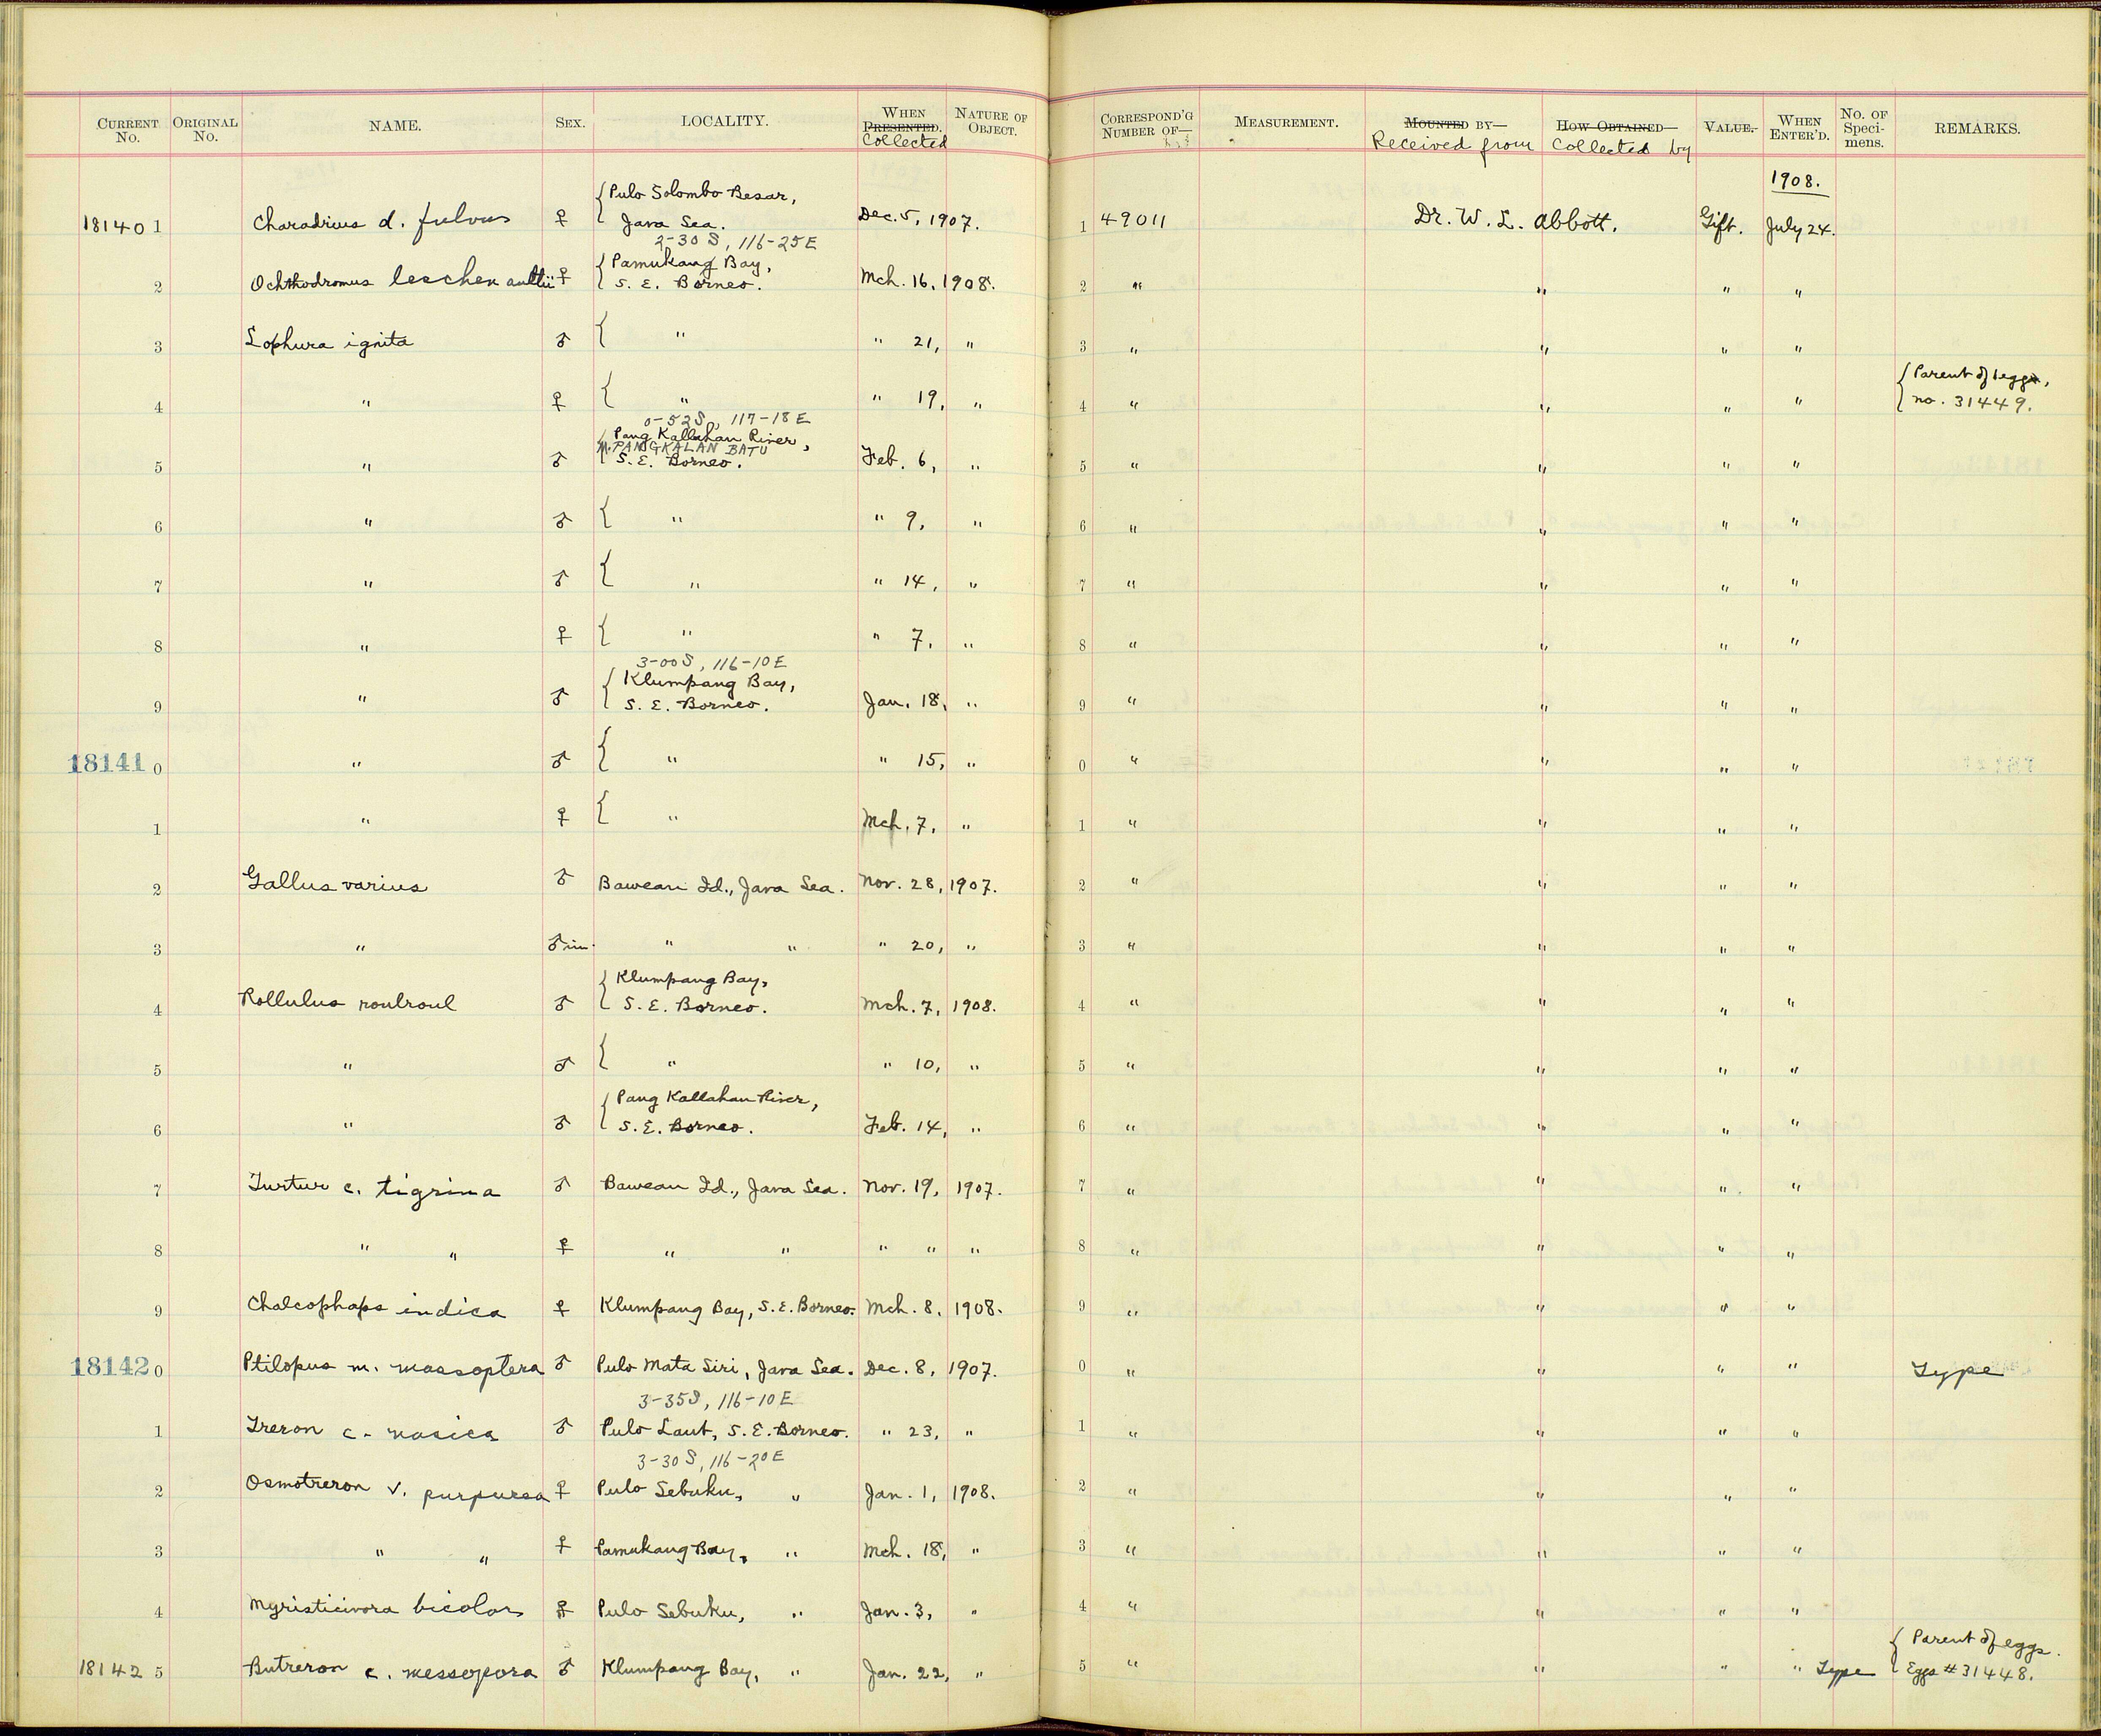 CURRENT No. ORIGINAL No. NAME. SEX. LOCALITY. WHEN PRESENTED. Collected NATURE OF OBJECT. CORRESPOND'G NUMBER OF— MEASUREMENT. MOUNTED BY— Received from HOW OBTAINED— Collected by VALUE. WHEN ENTER'D. No. OF Speci-mens. REMARKS.
1908.
{ Pulo Solombo Besar,
181401 Charadrius d. fulvus ♀ Java Sea. Dec. 5, 1907. 1 49011 Dr. W. L. Abbott. Gift. July 24.
2-30 S, 116-25 E
{ Pamukang Bay,
2 Ochthodromus leschenaultii ♀ S. E. Borneo. Mch. 16, 1908. 2 " " " "
3 Lophura ignita ♂ { " " 21, " 3 " " " "
4 " ♀ { " " 19, " 4 " " " " { Parent of 1 egg, no. 31449.
0-52 S, 117-18 E
{ Pang Kallahan River,
PANGKALAN BATU
5 " ♂ S. E. Borneo. Feb. 6, " 5 " " " "
6 " ♂ { " " 9, " 6 " " " "
7 " ♂ { " " 14, " 7 " " " "
8 " ♀ { " " 7, " 8 " " " "
3-00 S, 116-10 E
{ Klumpang Bay,
9 " ♂ S. E. Borneo. Jan. 18, " 9 " " " "
181410 " ♂ { " " 15, " 0 " " " "
1 " ♀ { " Mch. 7, " 1 " " " "
2 Gallus varius ♂ Bawean Id., Java Sea. Nov. 28, 1907. 2 " " " "
3 " ♂ im. " " " 20, " 3 " " " "
{ Klumpang Bay,
4 Rollulus roulroul ♂ S. E. Borneo. Mch. 7, 1908. 4 " " " "
5 " ♂ { " " 10, " 5 " " " "
{ Pang Kallahan River,
6 " ♂ S. E. Borneo. Feb. 14, " 6 " " " "
7 Turtur c. tigrina ♂ Bawean Id., Java Sea. Nov. 19, 1907. 7 " " " "
8 " " ♀ " " " " " 8 " " " "
9 Chalcophaps indica ♀ Klumpang Bay, S. E. Borneo. Mch. 8, 1908. 9 " " " "
181420 Ptilopus m. massoptera ♂ Pulo Mata Siri, Java Sea. Dec. 8, 1907. 0 " " " " Type
3-35 S, 116-10 E
1 Treron c. nasica ♂ Pulo Laut, S. E. Borneo. " 23, " 1 " " " "
3-30 S, 116-20 E
2 Osmotreron v. purpurea ♀ Pulo Sebuku, " Jan. 1, 1908. 2 " " " "
3 " " ♀ Pamukang Bay, " Mch. 18, " 3 " " " "
4 Myristicivora bicolor ♀ Pulo Sebuku, " Jan. 3, " 4 " " " "
181425 Butreron c. messopora ♂ Klumpang Bay, " Jan. 22, " 5 " " " " Type { Parent of eggs. Eggs # 31448.